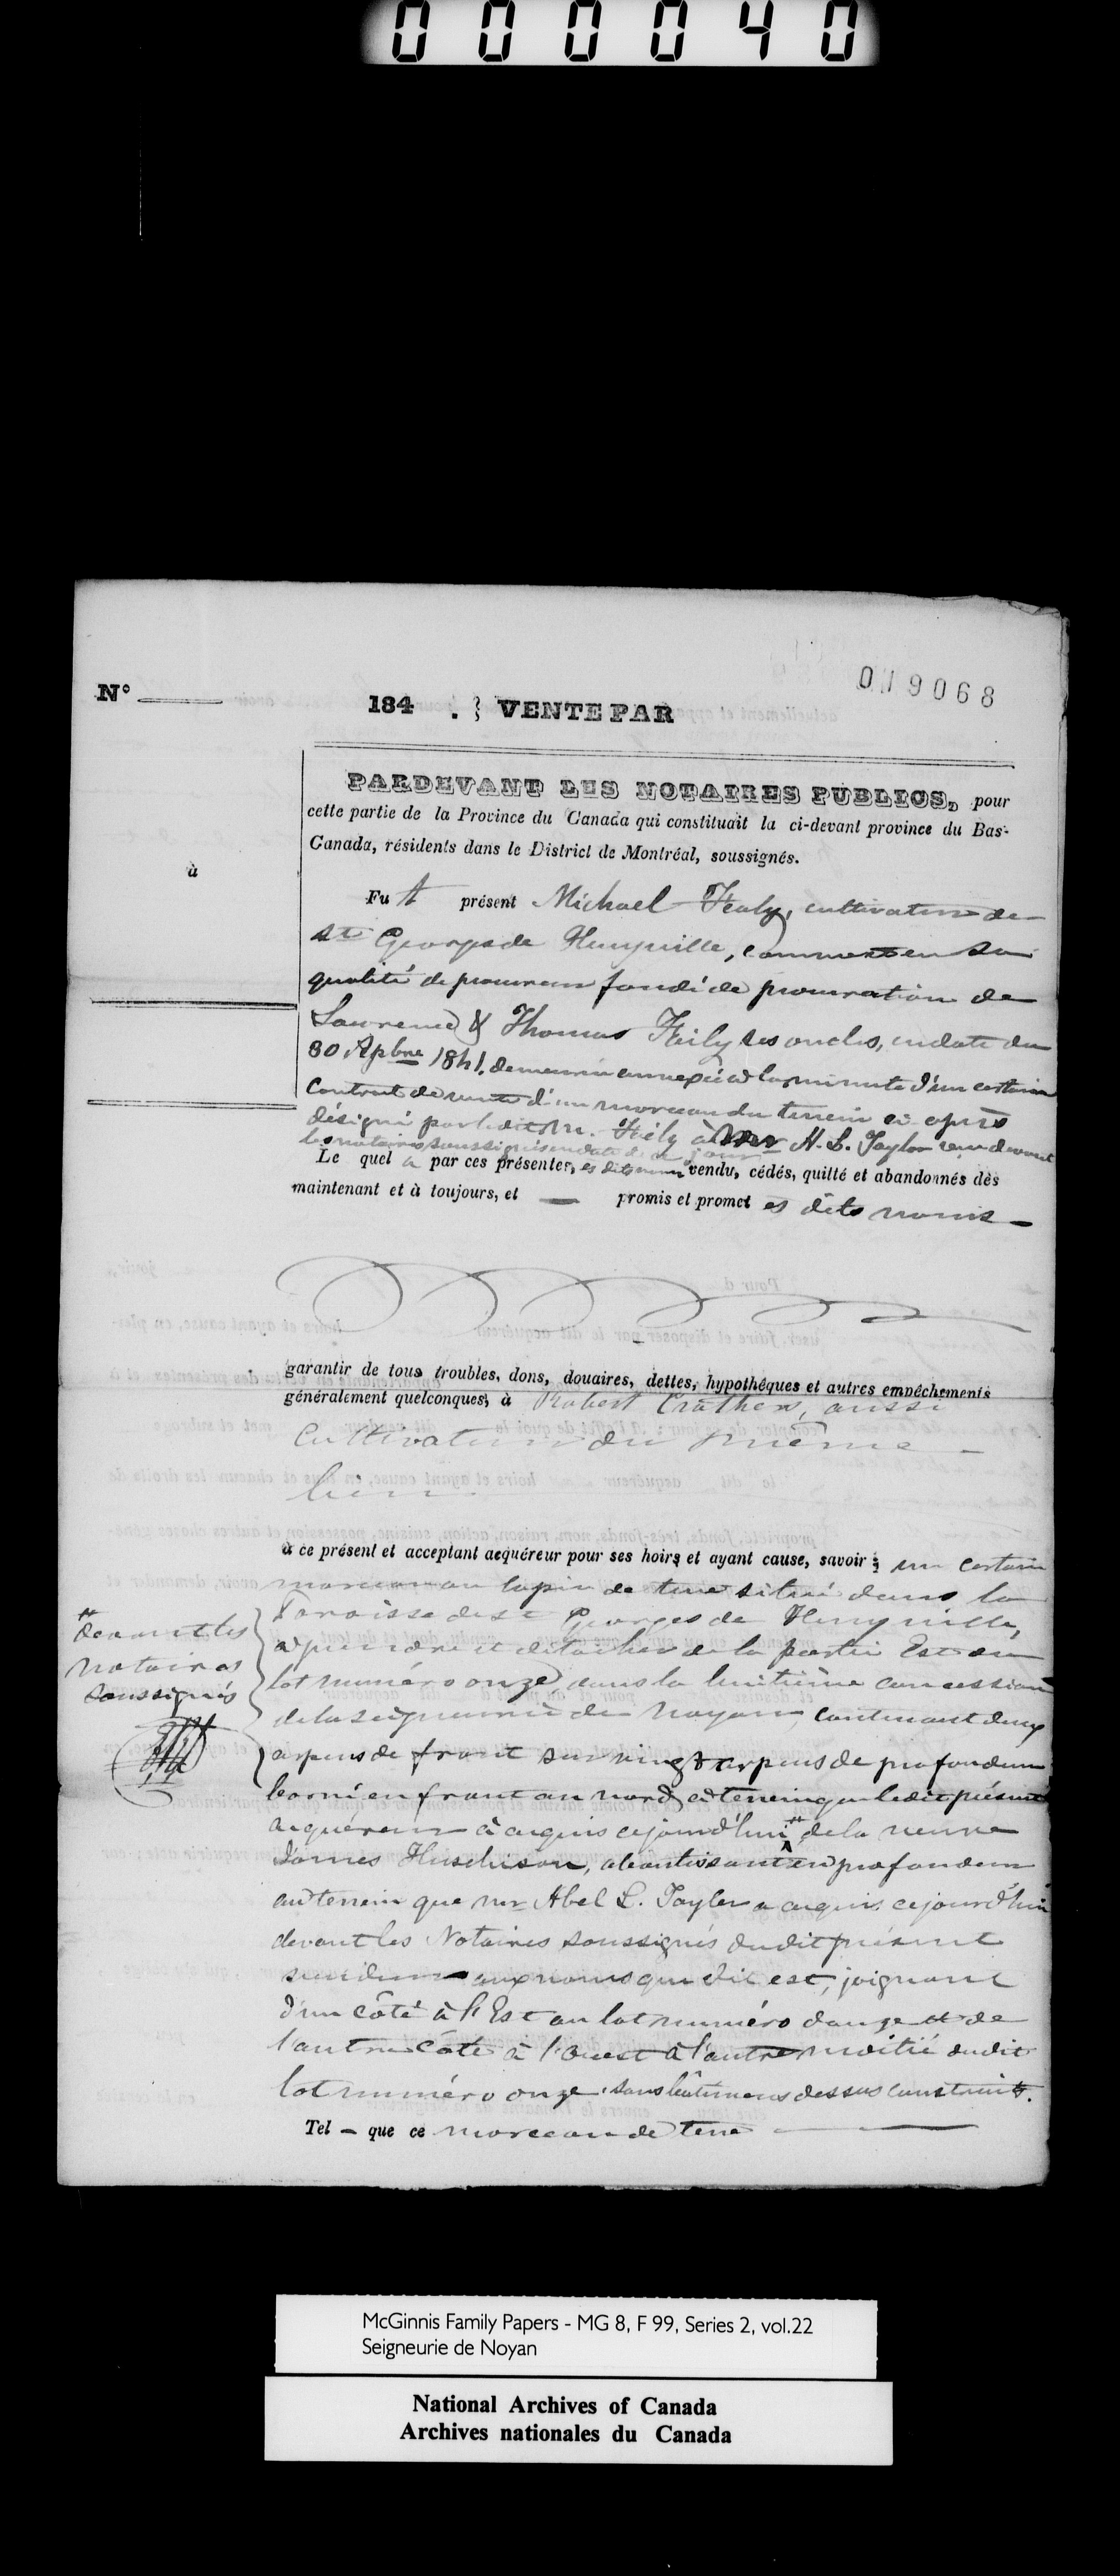 000040
019068
N° 184 . } VENTE PAR
PARDEVANT LES NOTAIRES PUBLICS, pour
cette partie de la Province du Canada qui constituait la ci-devant province du Bas-
Canada, résidents dans le District de Montréal, soussignés.
à
Fu t présent Michael Healy, cultivateur de
St Georges de Henryville, comme en sa
qualité de procureur fondé de procuration de
Lawrence & Thomas Heily ses oncles, en date du
30 7bre 1841. demeurée annexée à la minute d'un certain
Contrat de vente d'un morceau du terrein ci après
désigné par ledit Mr. Hély à Mr A. L. Taylor reçu devant
les notaires soussignés en date de ce jour
Le quel a par ces présentes, es dits noms vendu, cédés, quitté et abandonnés dès
maintenant et à toujours, et — promis et promet es dits noms —
garantir de tous troubles, dons, douaires, dettes, hypothèques et autres empêchements
généralement quelconques, à Robert Crothers, aussi
Cultivateur du même —
lieu
à ce présent et acceptant acquéreur pour ses hoirs et ayant cause, savoir : un certain
morceau ou lopin de terre situé dans la
Paroisse de St Georges de Henryville,
à prendre et détacher de la partie Est du
lot numéro onze, dans la huitième concession
de la seigneurie de Noyan, contenant deux
arpens de front sur vingt arpens de profondeur
borné en front au nord au terrein que ledit présent
acquéreur a acquis cejourd'hui # de la veuve
James Huschison, aboutissant en profondeur
au terrein que mr Abel L. Taylor a acquis cejourd'hui
devant les Notaires soussignés dudit présent
vendeur aux noms que dit est, joignant
d'un côté à l'Est au lot numéro douze et de
l'autre côté à l'ouest à l'autre moitié dudit
lot numéro onze, sans bâtimens dessus construits.
Tel — que ce morceau de terre
# devant les
notaires
soussignés
McGinnis Family Papers - MG 8, F 99, Series 2, vol.22
Seigneurie de Noyan
National Archives of Canada
Archives nationales du Canada